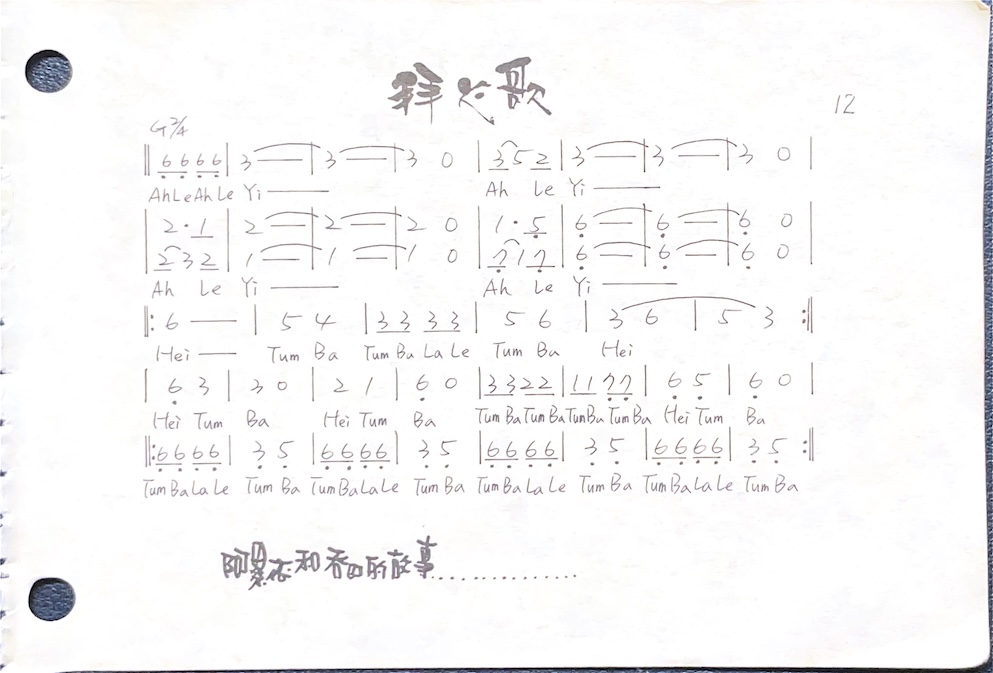 拜火歌
12
G 2/4
‖ 6̣6̣6̣6̣ | 3 — | 3 — | 3 0 | 3 5 2 | 3 — | 3 — | 3 0 |
AhLeAhLe Yi ——— Ah Le Yi ———
| 2·1 | 2 — | 2 — | 2 0 | 1·5̣ | 6̣ — | 6̣ — | 6̣ 0
| 2 3 2 | 1 — | 1 — | 1 0 | 7̣ 1 7̣ | 6̣ — | 6̣ — | 6̣ 0 |
Ah Le Yi ——— Ah Le Yi ———
‖: 6 — | 5 4 | 3 3 3 3 | 5 6 | 3 6 | 5 3 :‖
Hei — Tum Ba Tum Ba La Le Tum Ba Hei
| 6̣ 3 | 3 0 | 2 1 | 6̣ 0 | 3 3 2 2 | 1 1 7̣ 7̣ | 6̣ 5̣ | 6̣ 0 |
Hei Tum Ba Hei Tum Ba Tum Ba Tum Ba Tum Ba Tum Ba Hei Tum Ba
‖: 6̣6̣6̣6̣ | 3̣ 5̣ | 6̣6̣6̣6̣ | 3̣ 5̣ | 6̣6̣6̣6̣ | 3̣ 5̣ | 6̣6̣6̣6̣ | 3̣ 5̣ :‖
Tum Ba La Le Tum Ba Tum Ba La Le Tum Ba Tum Ba La Le Tum Ba Tum Ba La Le Tum Ba
和 的故事..............